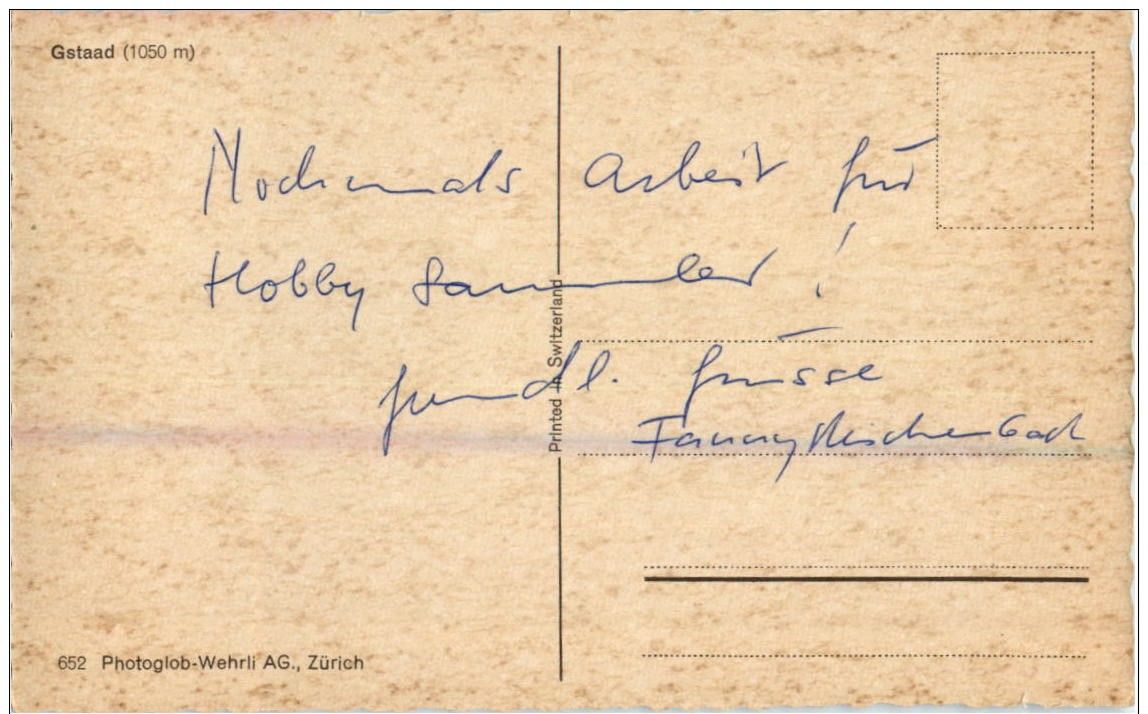 Gstaad (1050 m)
Nochmals Arbeit für
Hobby Sammler!
freundl. Grüsse
Fanny
Printed in Switzerland
652 Photoglob-Wehrli AG., Zürich